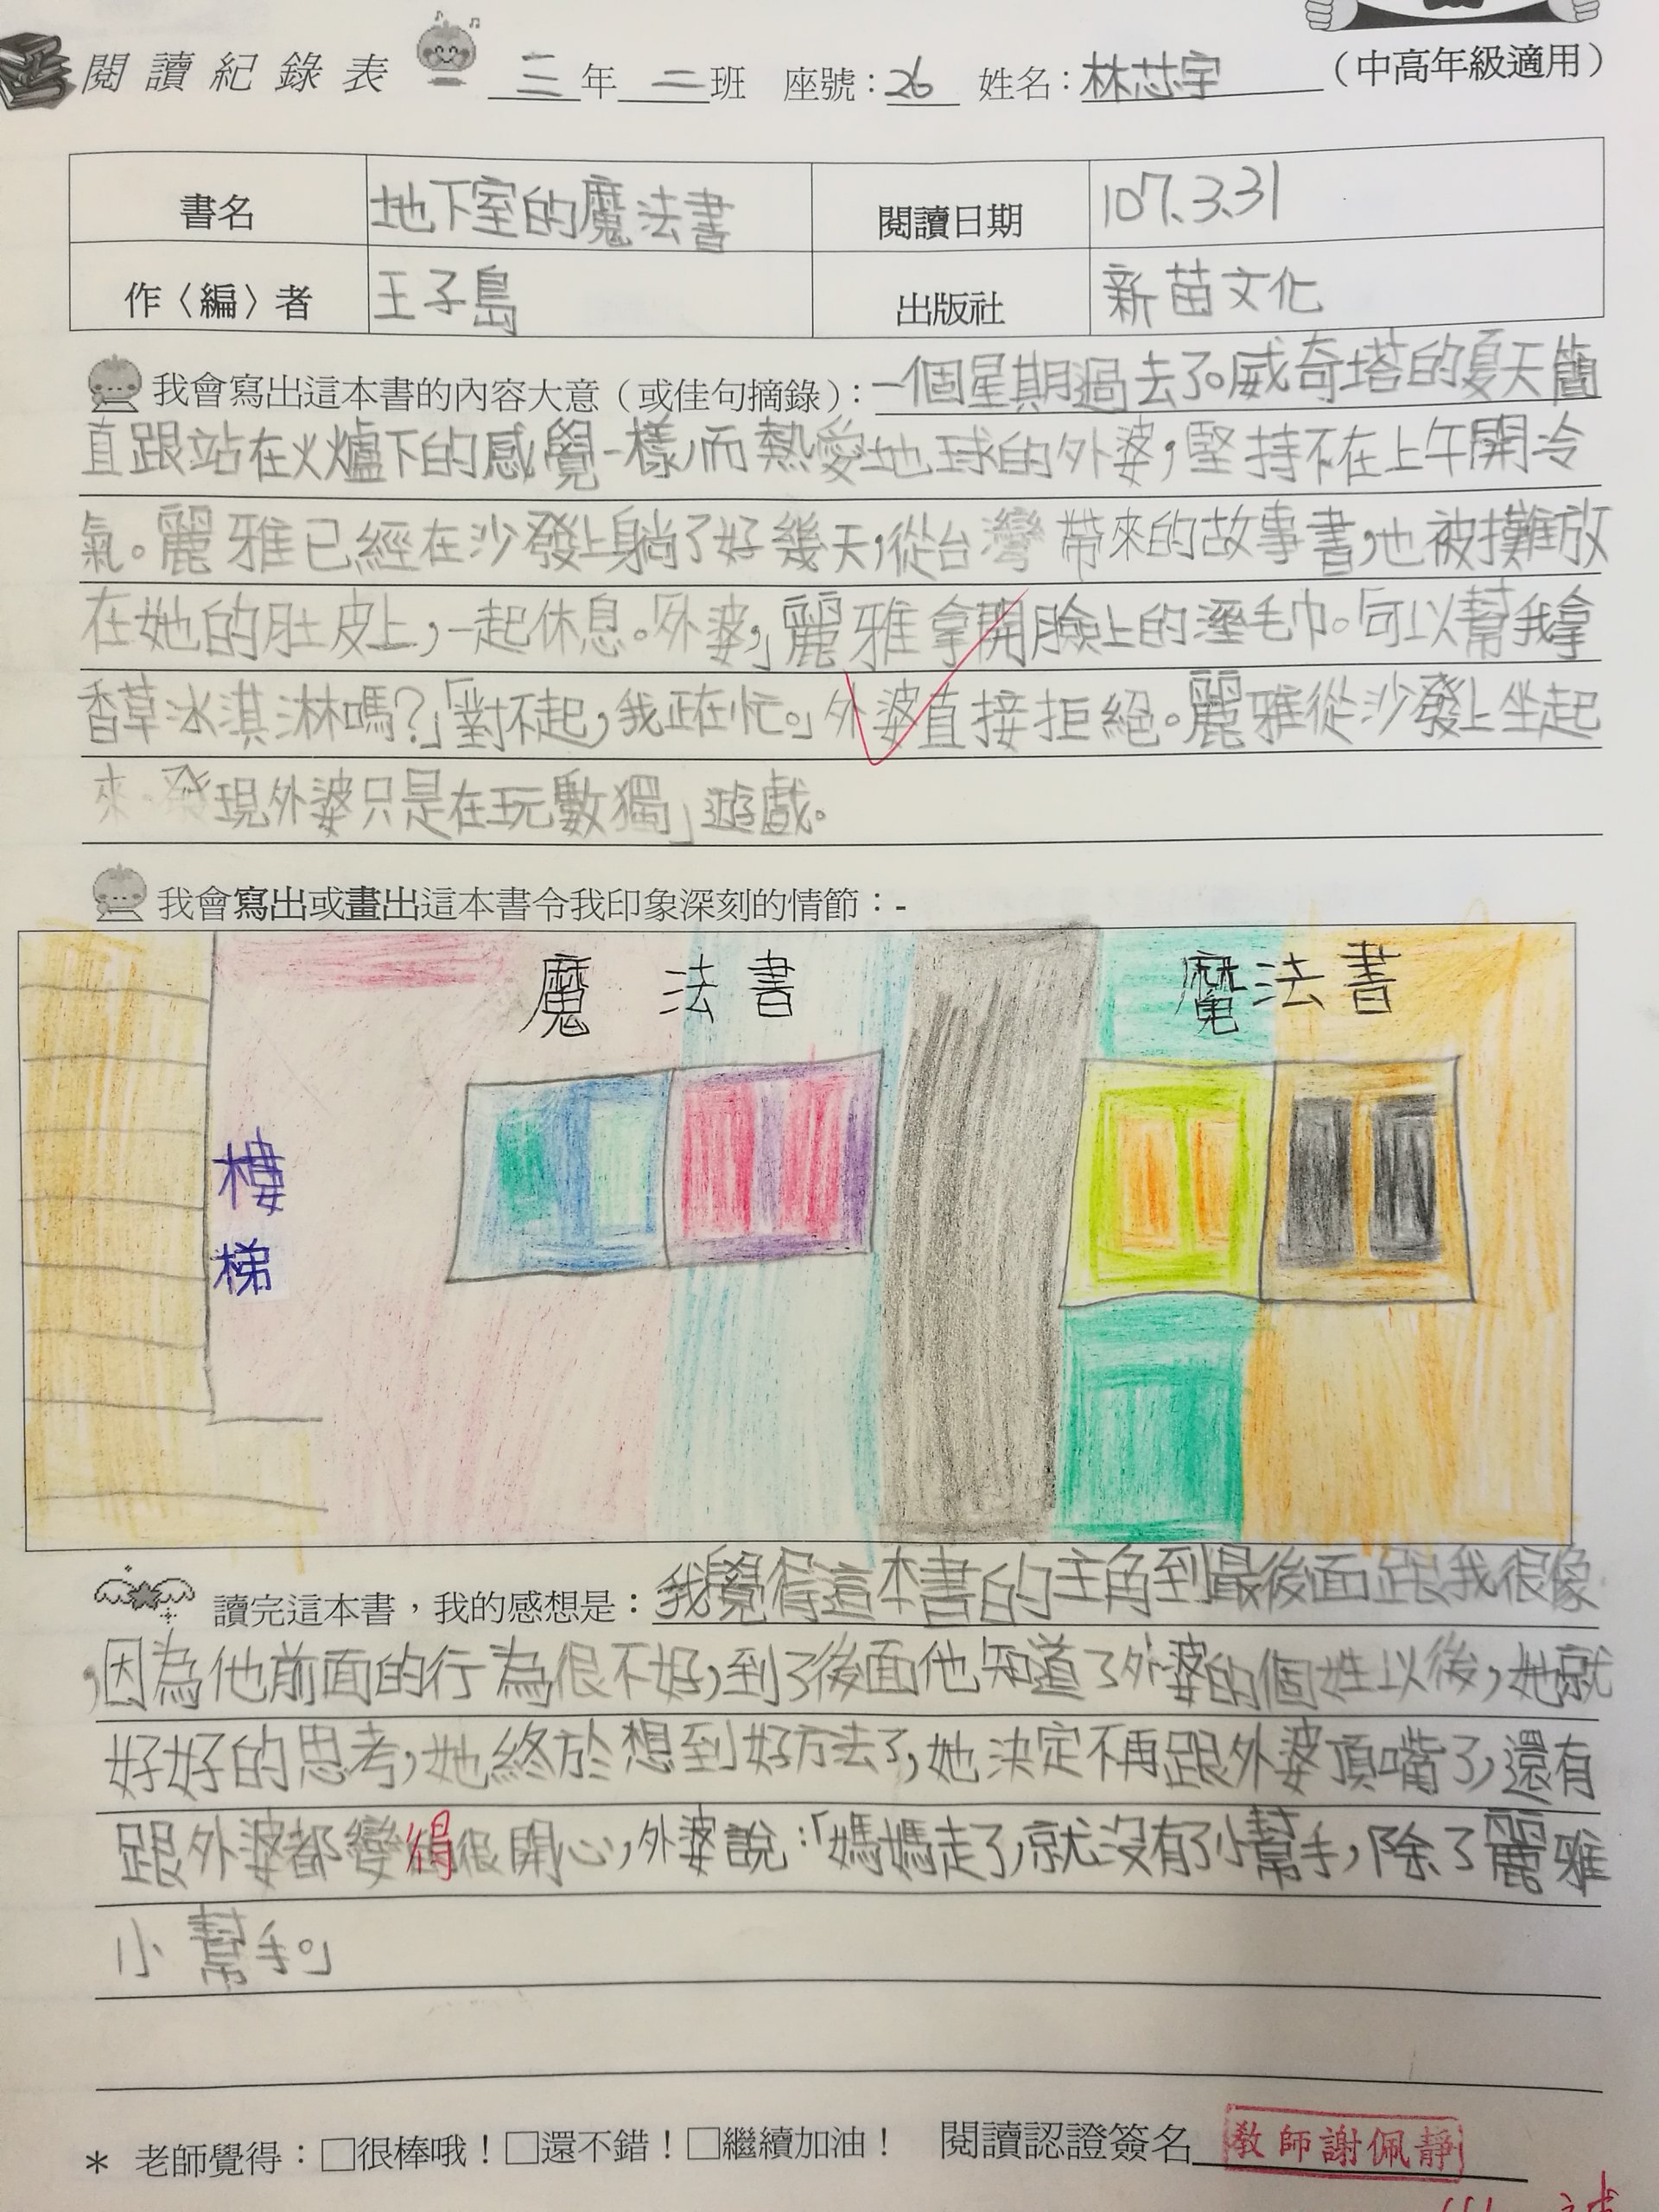 閱讀紀錄表 三年二班 座號：26 姓名：林芯宇 （中高年級適用）
書名 地下室的魔法書 閱讀日期 107.3.31
作〈編〉者 王子島 出版社 新苗文化
我會寫出這本書的內容大意（或佳句摘錄）：一個星期過去了。威奇塔的夏天簡
直跟站在火爐下的感覺一樣，而熱愛地球的外婆，堅持不在上午開冷
氣。麗雅已經在沙發上躺了好幾天，從台灣帶來的故事書，也被攤放
在她的肚皮上，一起休息。「外婆，」麗雅拿開臉上的溼毛巾。「可以幫我拿
香草冰淇淋嗎？」「對不起，我正在忙。」外婆直接拒絕。麗雅從沙發上坐起
來，發現外婆只是在玩數獨」遊戲。
我會寫出或畫出這本書令我印象深刻的情節：-
魔法書 魔法書
樓
梯
讀完這本書，我的感想是：我覺得這本書的主角到最後面跟我很像
，因為他前面的行為很不好，到了後面他知道了外婆的個姓以後，她就
好好的思考，她終於想到好方法了，她決定不再跟外婆頂嘴了，還有
跟外婆都變得很開心，外婆說：「媽媽走了，就沒有了小幫手，除了麗雅
小幫手。」
* 老師覺得：□很棒哦！□還不錯！□繼續加油！ 閱讀認證簽名 教師謝佩靜